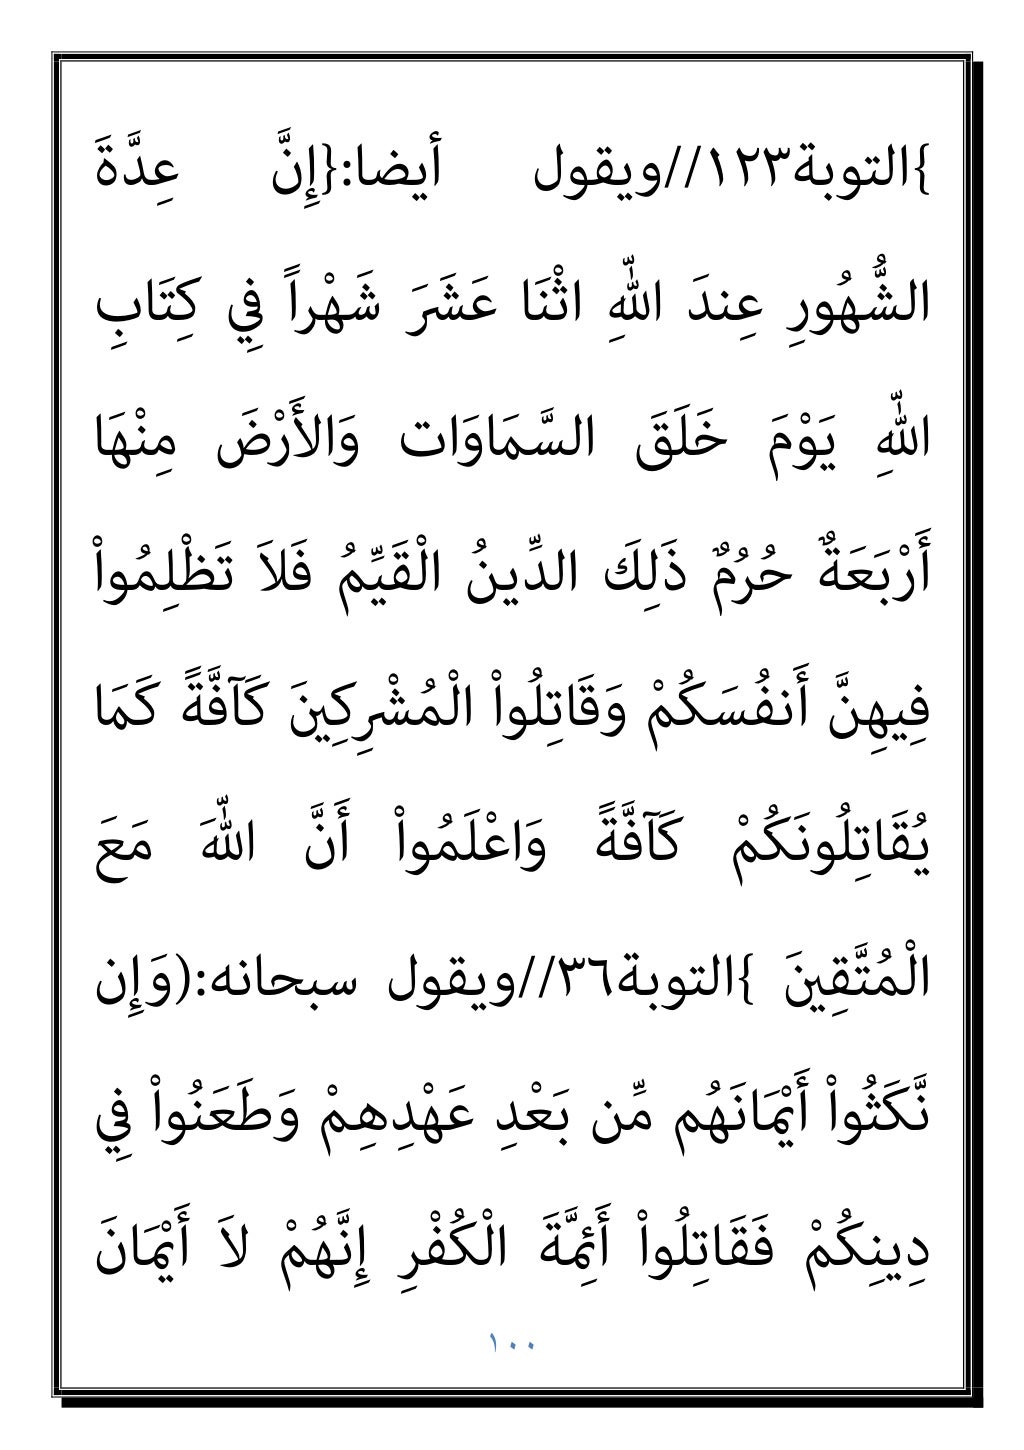 }التوبة١٢٣//ويقول أيضا:{إِنَّ عِدَّةَ
الشُّهُورِ عِندَ اللّهِ اثْنَا عَشَرَ شَهْراً فِي كِتَابِ
اللّهِ يَوْمَ خَلَقَ السَّمَاوَات وَالأَرْضَ مِنْهَا
أَرْبَعَةٌ حُرُمٌ ذَلِكَ الدِّينُ الْقَيِّمُ فَلاَ تَظْلِمُواْ
فِيهِنَّ أَنفُسَكُمْ وَقَاتِلُواْ الْمُشْرِكِينَ كَآفَّةً كَمَا
يُقَاتِلُونَكُمْ كَآفَّةً وَاعْلَمُواْ أَنَّ اللّهَ مَعَ
الْمُتَّقِينَ }التوبة٣٦//ويقول سبحانه:(وَإِن
نَّكَثُواْ أَيْمَانَهُم مِّن بَعْدِ عَهْدِهِمْ وَطَعَنُواْ فِي
دِينِكُمْ فَقَاتِلُواْ أَئِمَّةَ الْكُفْرِ إِنَّهُمْ لاَ أَيْمَانَ
١٠٠